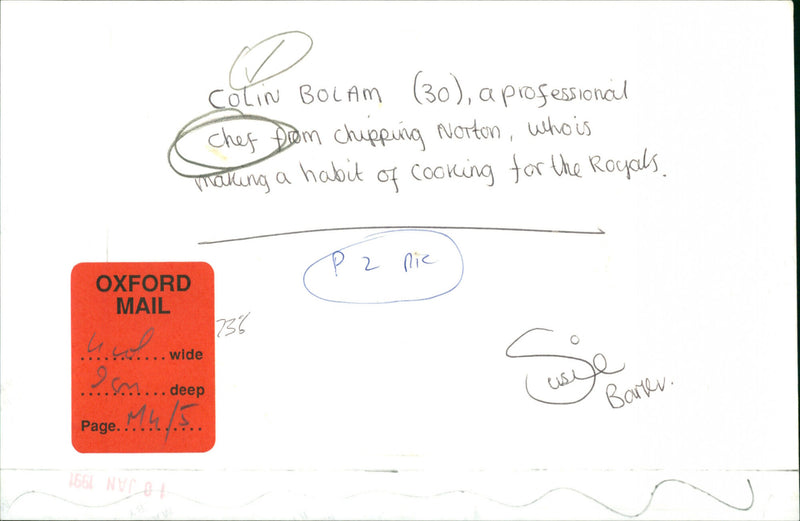 COLIN BOLAM (30), a professional
chef from chipping Norton, who is
making a habit of cooking for the Royals.
P 2 pic
OXFORD
MAIL
738
4 col wide
deep
Page M4/5
Susie
Barker.
10 JAN 1991